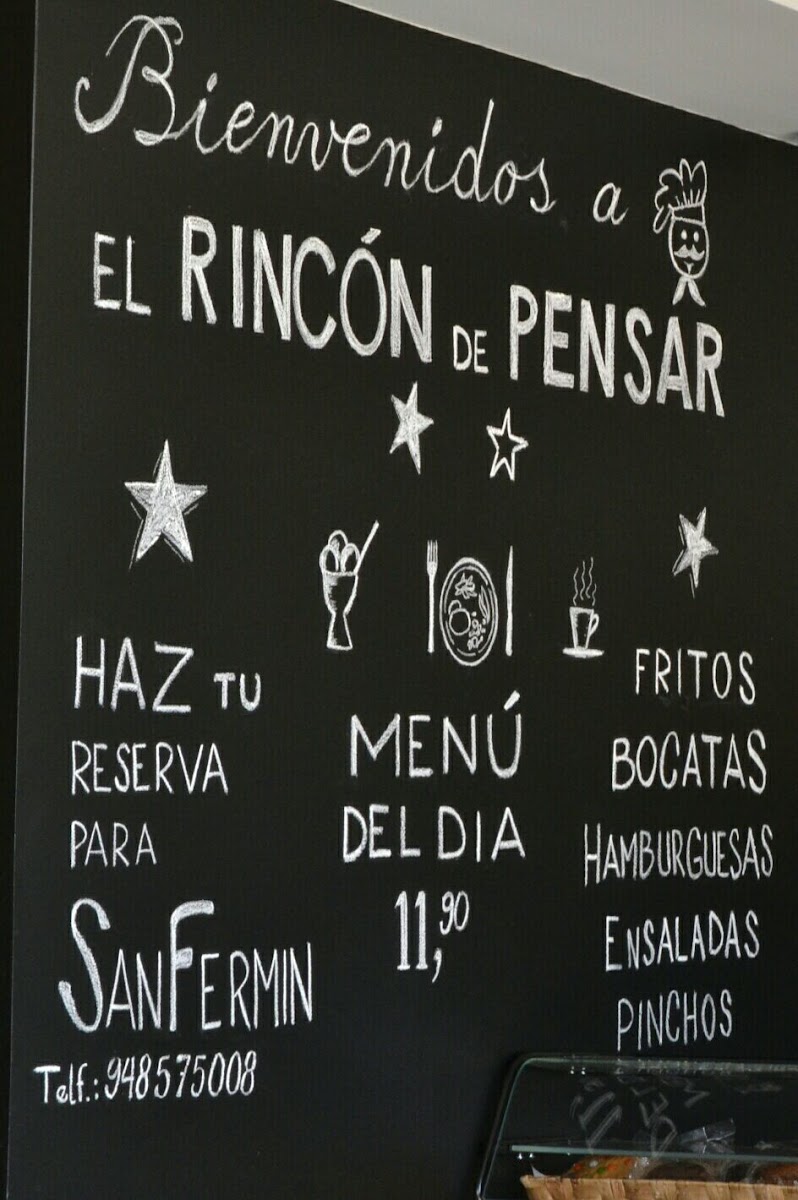 Bienvenidos a
EL RINCÓN DE PENSAR
HAZ TU
RESERVA
PARA
SANFERMIN
Telf.: 948575008
MENÚ
DEL DIA
11,90
FRITOS
BOCATAS
HAMBURGUESAS
ENSALADAS
PINCHOS